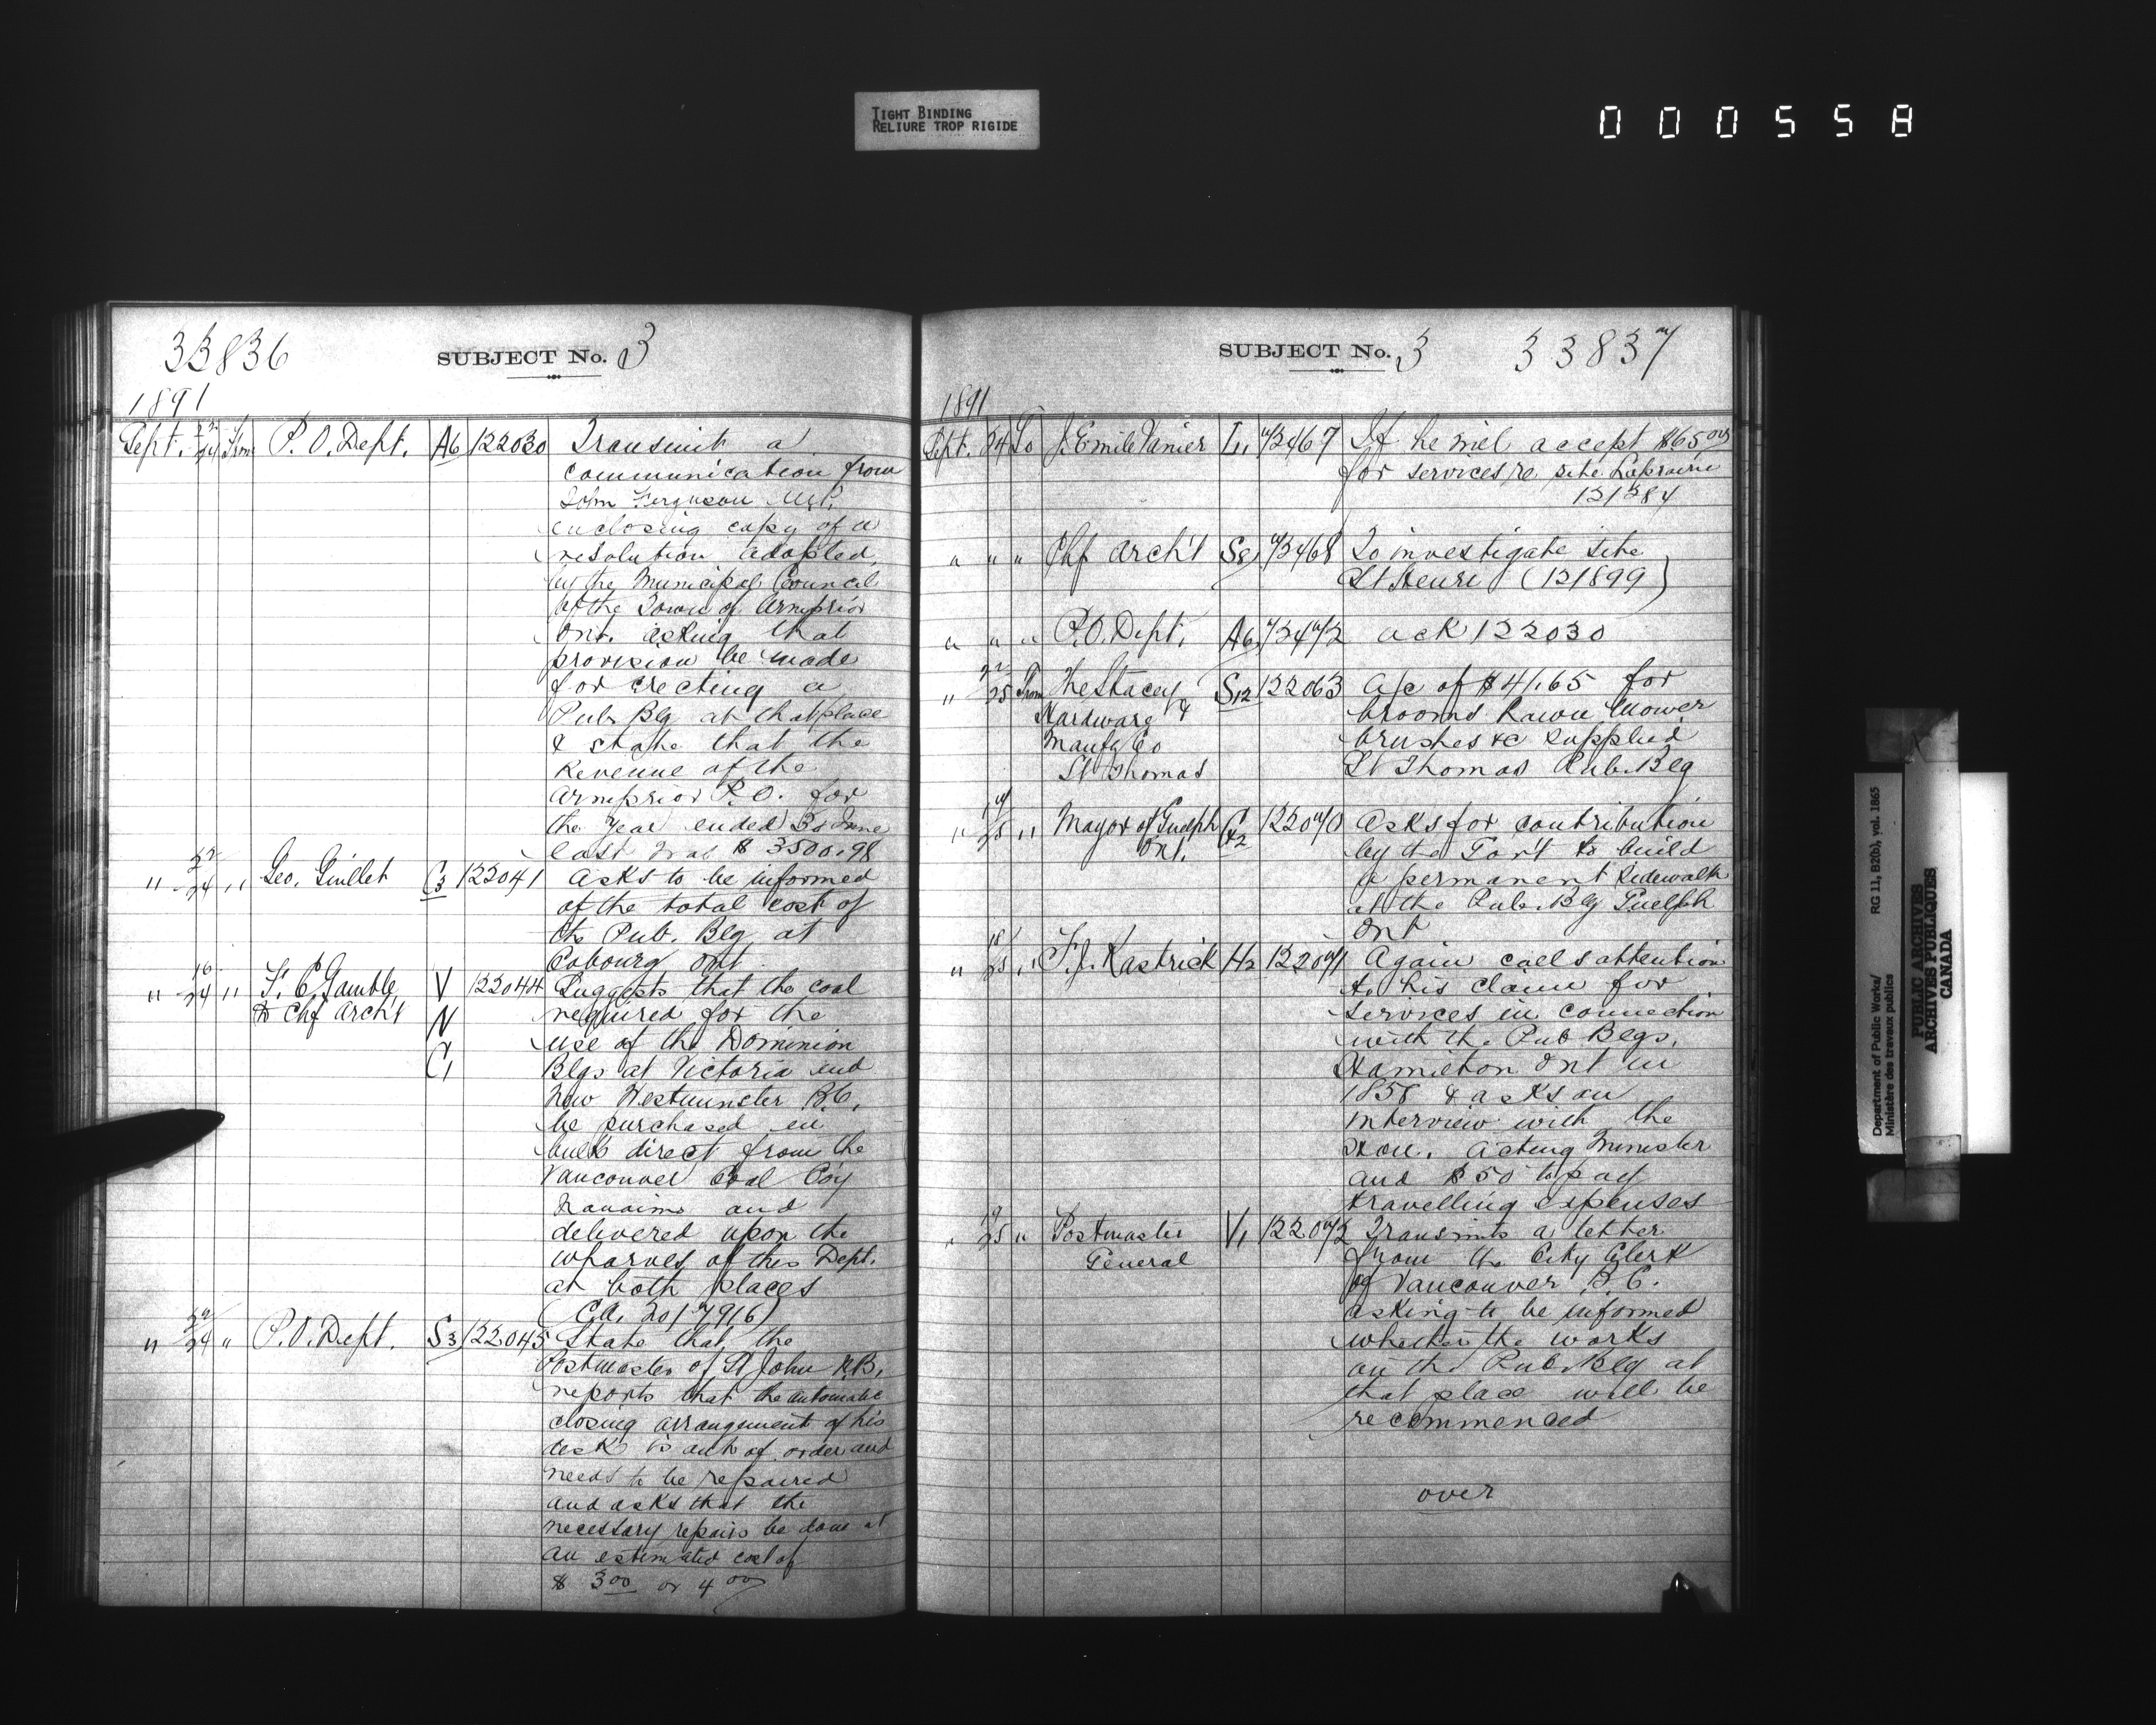 TIGHT BINDING
RELIURE TROP RIGIDE
000558
33836
SUBJECT No. 3
1891
Sept. 23/24 From P. O. Dept. A6 122030 Transmit a
communication from
John Ferguson M.P.
enclosing copy of a
resolution adopted
by the Municipal Council
of the Town of Arnprior
Ont. asking that
provision be made
for erecting a
Pub. Blg at that place
& state that the
Revenue of the
Arnprior P.O. for
the year ended 30 June
last was $ 3500.98
" 24 " Geo. Guillet C3 122041 Asks to be informed
of the total cost of
the Pub. Blg at
Cobourg Ont
" 16/24 " F. C. Gamble V 122044 Suggests that the coal
to Chf Arch't N required for the
use of the Dominion
C1 Blgs at Victoria and
New Westminster B.C.
be purchased in
bulk direct from the
Vancouver Coal Coy
Nanaimo and
delivered upon the
wharves of this Dept.
at both places
(C.A. 207916)
" 24 " P. O. Dept. S3 122045 State that the
Postmaster of St John N.B.
reports that the automatic
closing arrangement of his
desk is out of order and
needs to be repaired
and asks that the
necessary repairs be done at
an estimated cost of
$ 3 00 or 4 00
SUBJECT No. 3 33837
1891
Sept. 24 To J. Emile Vanier L1 72467 If he will accept $65 00
for services re site Laprairie
" " " Chf Arch't S8 72468 To investigate site
St Henri (121899)
" " " P. O. Dept. A6 72472 ack 122030
" 22/25 From The Stacey S12 122063 a/c of $41.65 for
Hardware & brooms Lawn Mower
Manfg Co brushes &c supplied
St Thomas St Thomas Pub. Blg
" 25 " Mayor of Guelph G2 122070 Asks for contribution
Ont. by the Gov't to build
a permanent sidewalk
at the Pub. Blg Guelph
Ont
" 18/25 " F. J. Rastrick H2 122071 Again calls attention
to his claim for
services in connection
with the Pub Blgs.
Hamilton Ont in
1858 & asks an
interview with the
Hon. Acting Minister
and $50 to pay
travelling expenses
" 19/25 " Postmaster V1 122072 Transmits a letter
General from the City Clerk
of Vancouver B.C.
asking to be informed
whether the works
on the Pub. Blg at
that place will be
recommenced
over
Department of Public Works/ RG 11, B2(b), vol. 1865
Ministère des travaux publics
PUBLIC ARCHIVES
ARCHIVES PUBLIQUES
CANADA